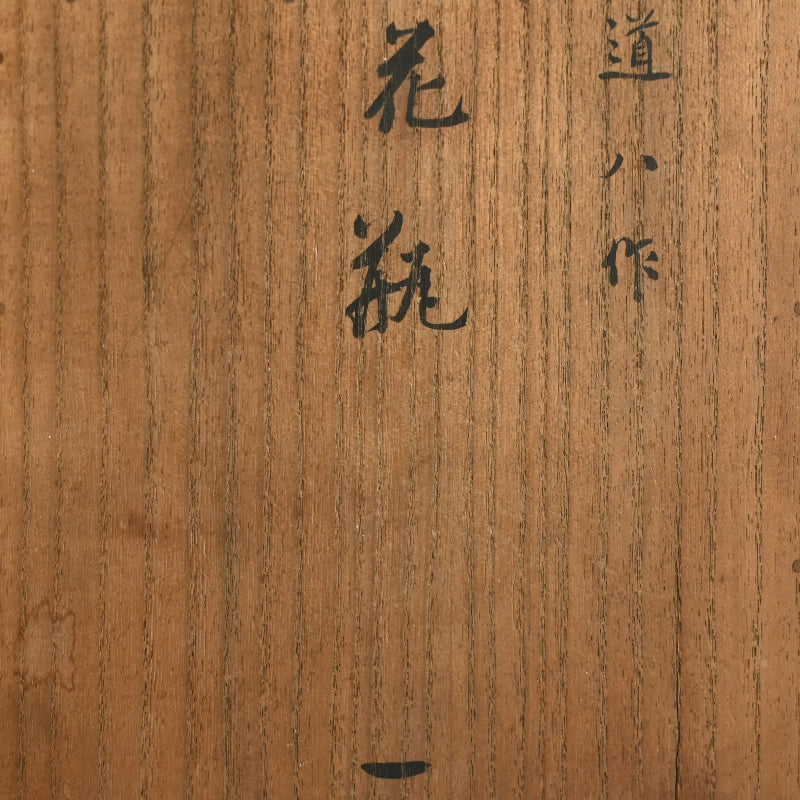 道八作
花瓶
一